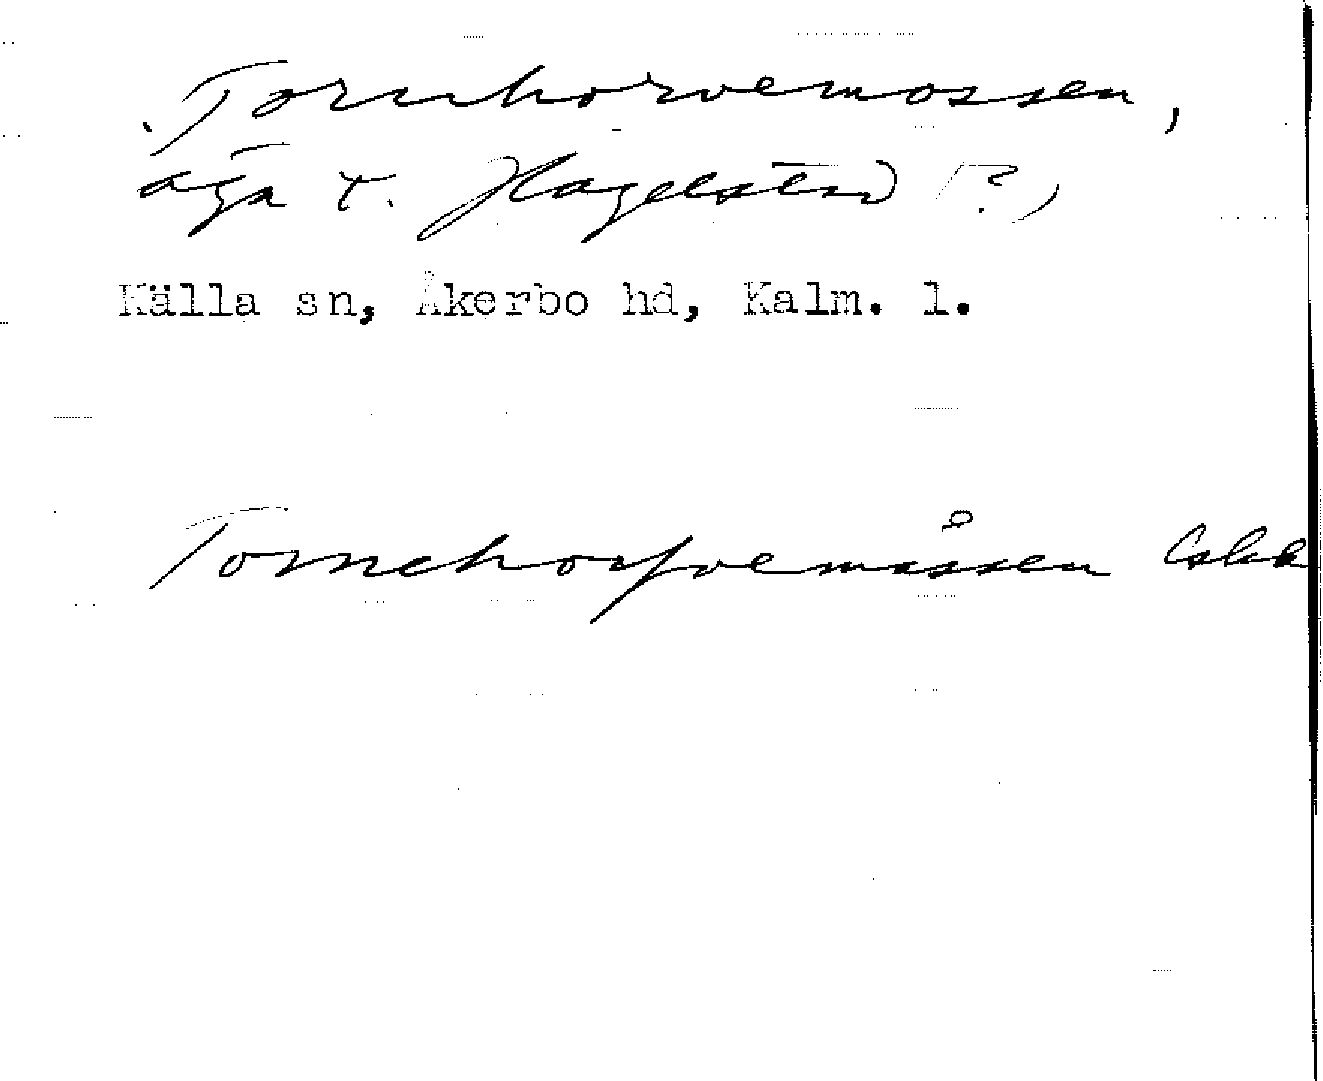 Tornhorvemossen,
äga t. Hagelstad (?),
Källa sn, Åkerbo hd, Kalm. l.
Tornehorfvemåssen